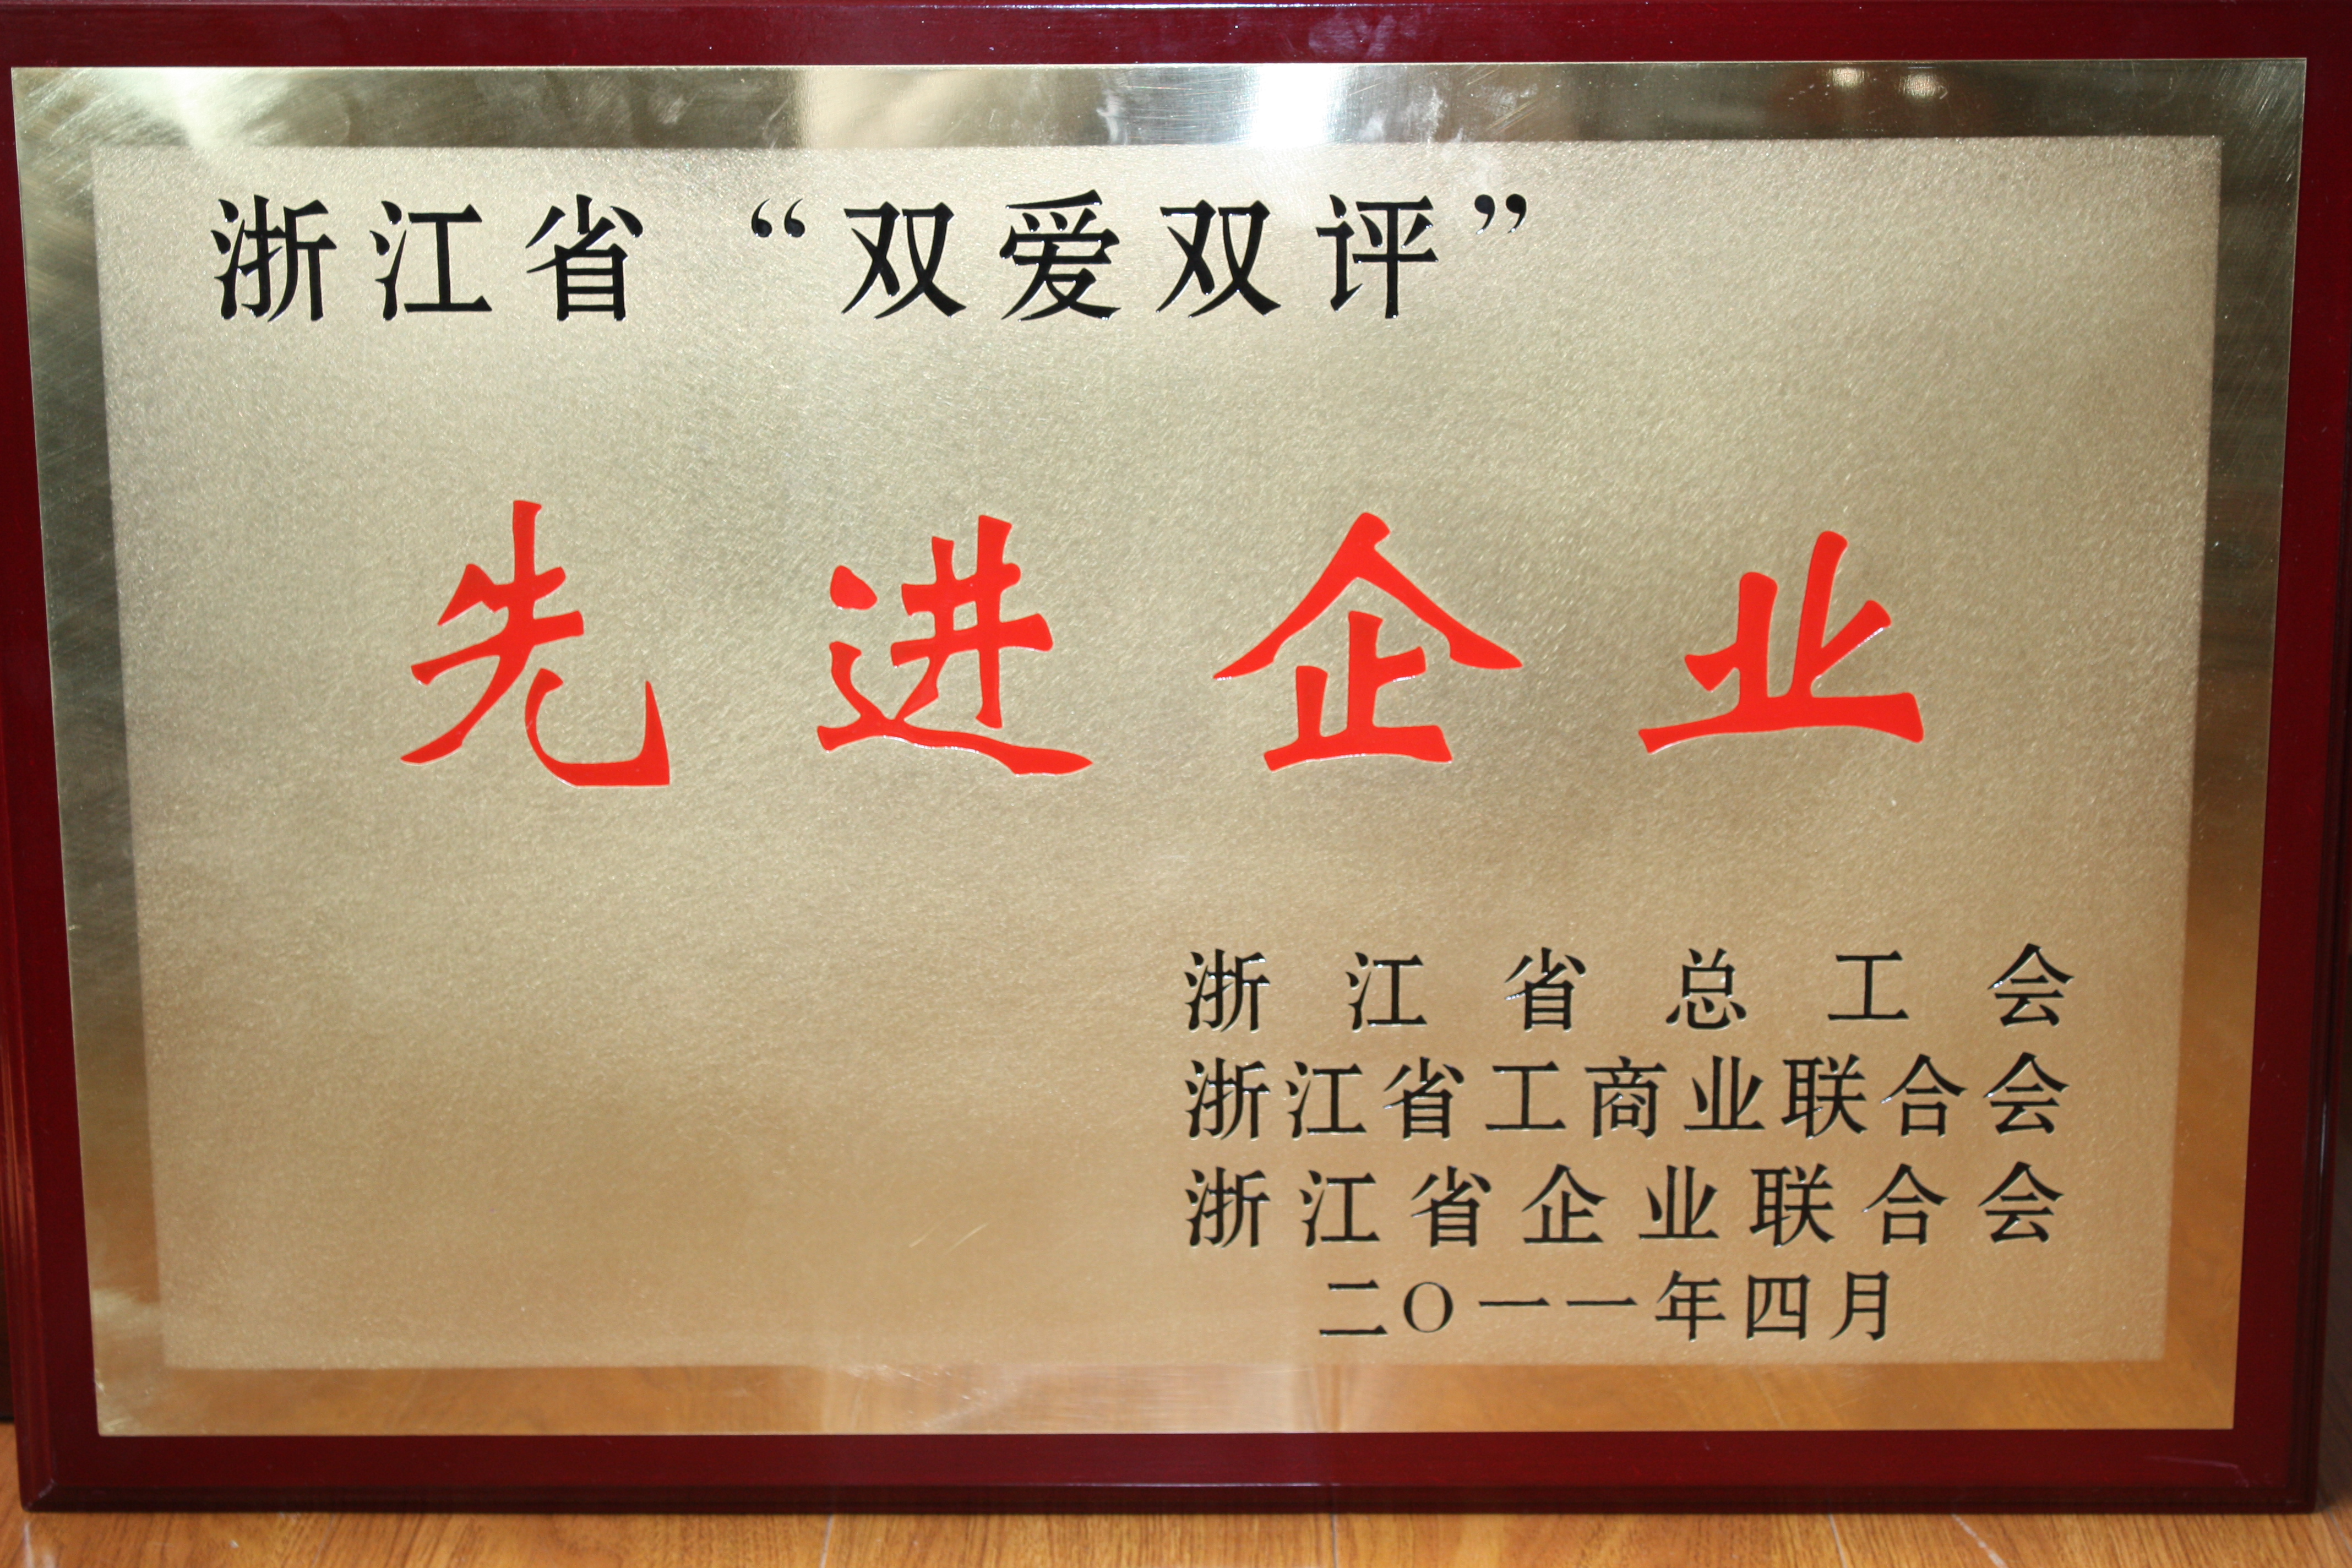 浙江省“双爱双评”
先进企业
浙江省总工会
浙江省工商业联合会
浙江省企业联合会
二〇一一年四月